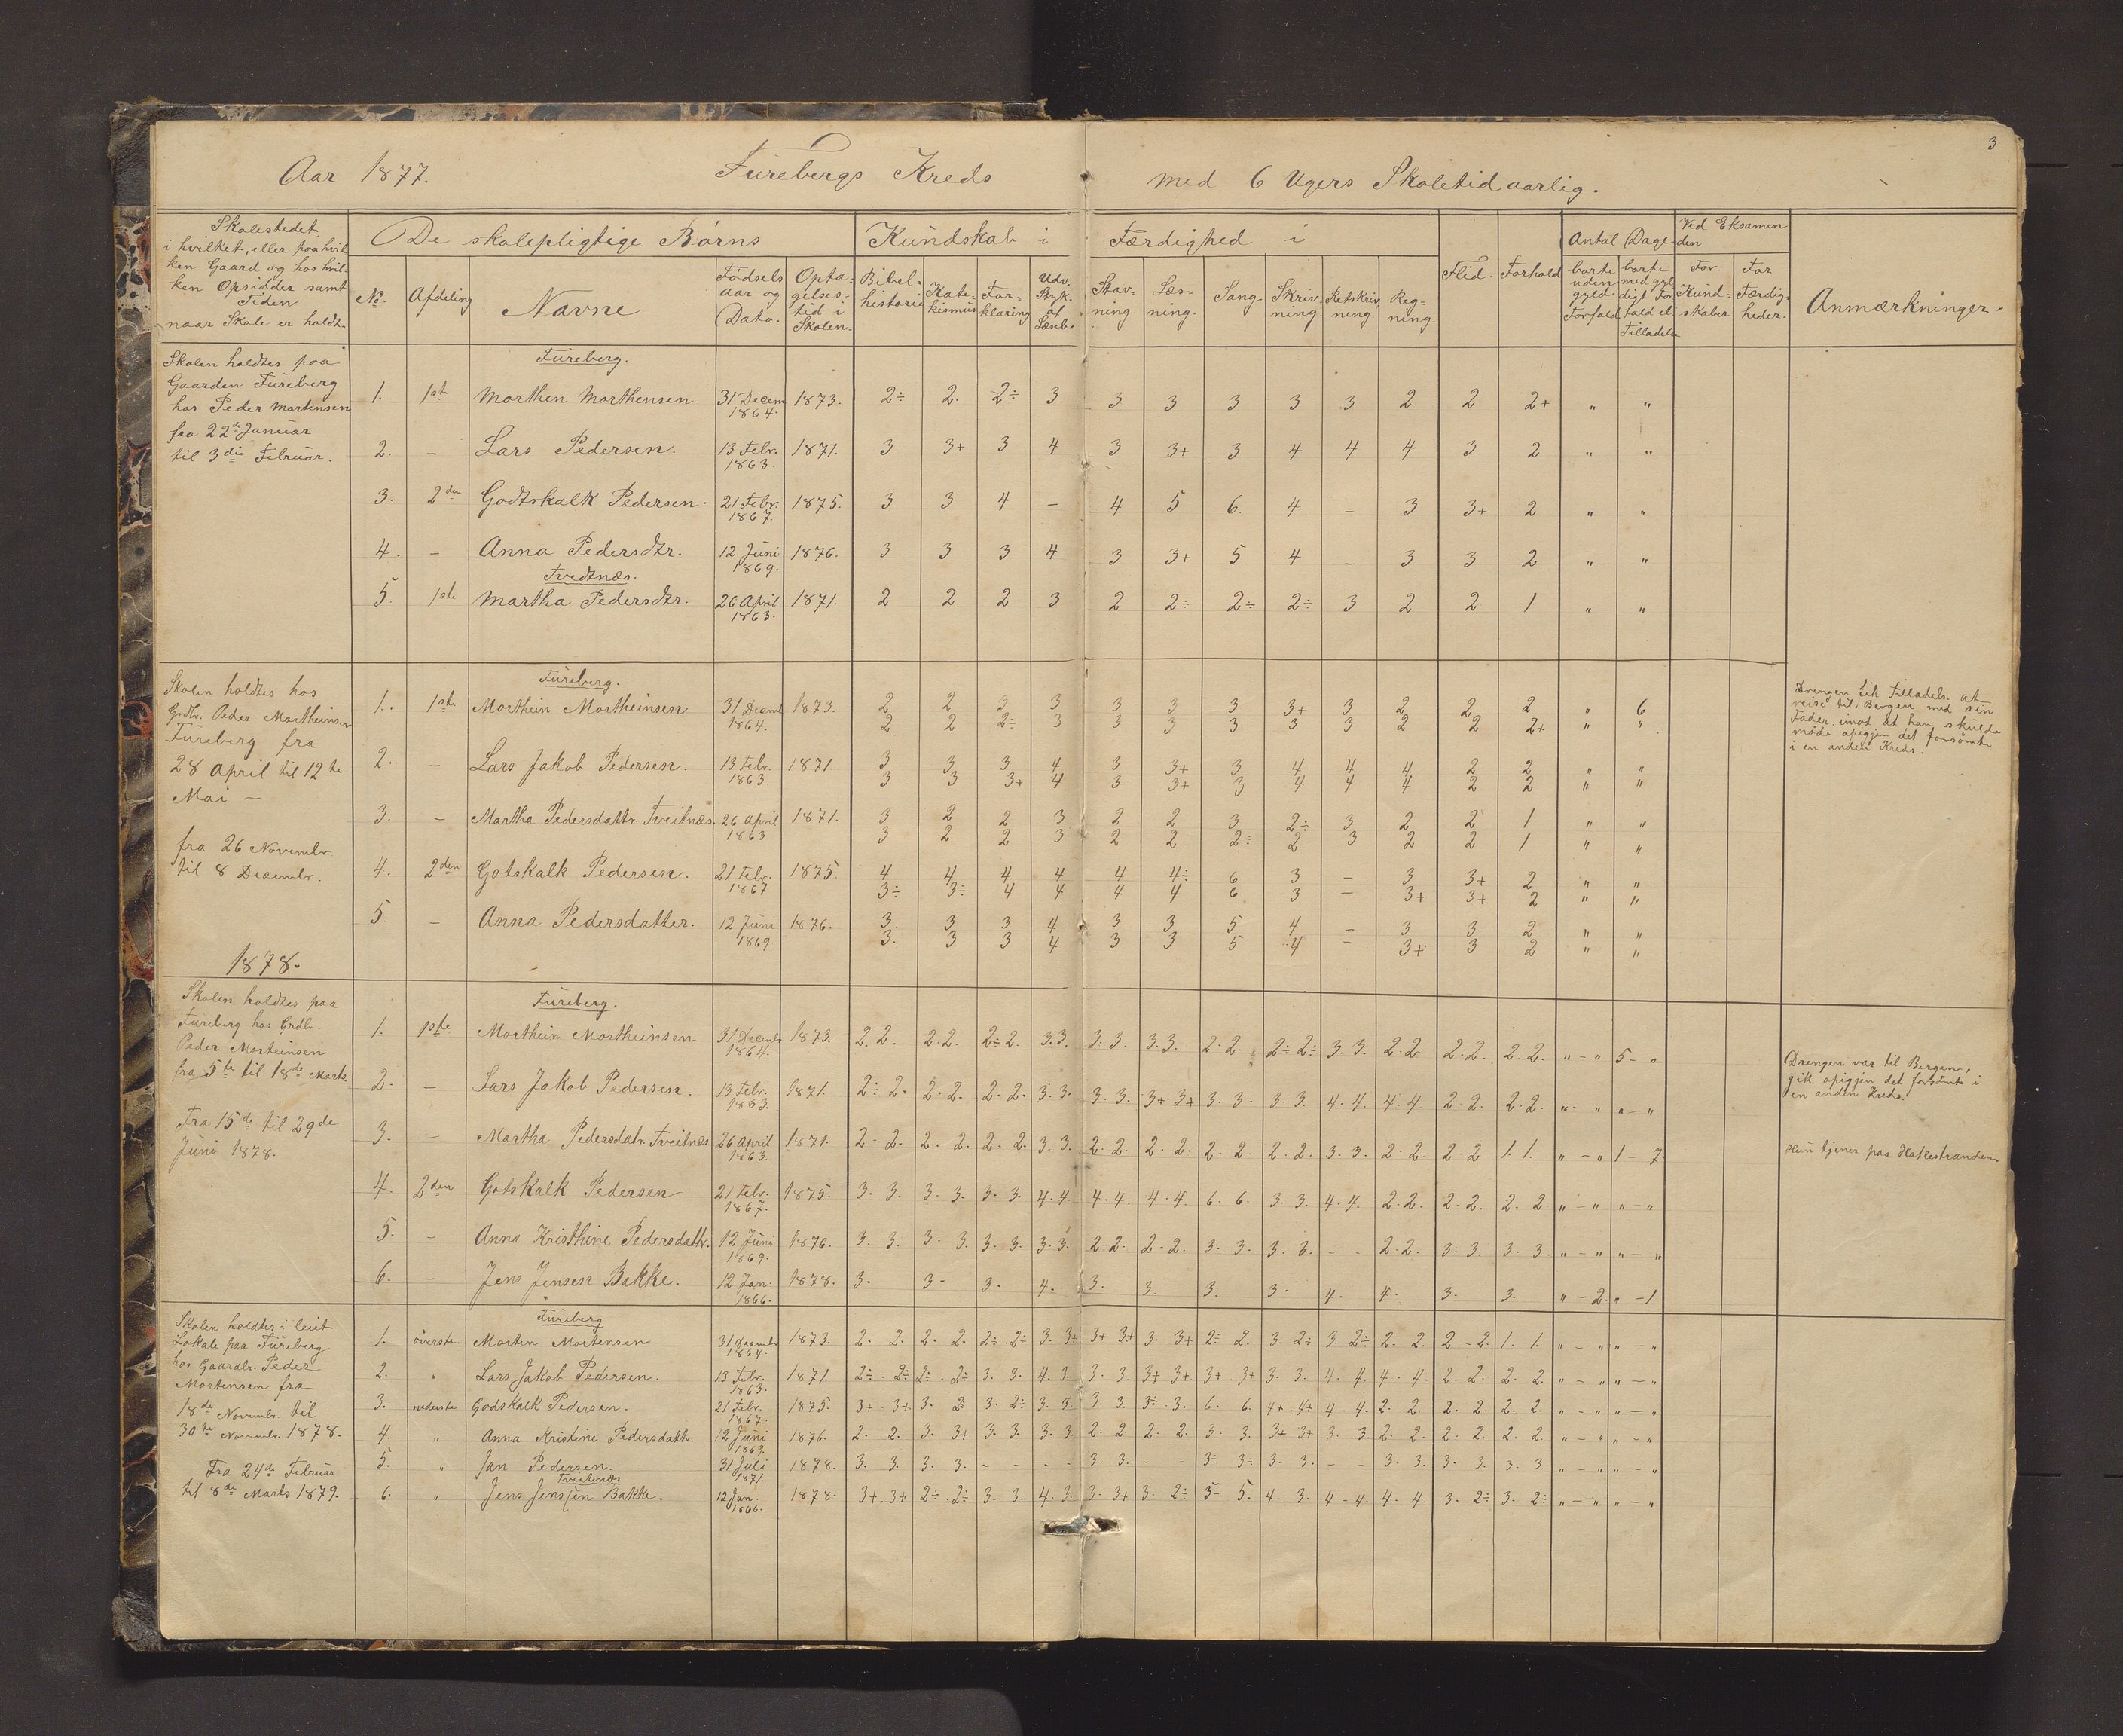 3
Aar 1877. Fürebergs Kreds med 6 Ugers Skoletid aarlig.
Skolestedet, i hvilket, eller paa hvilken Gaard og hos hvilken Opsidder samt Tiden naar Skole er holdt.
De skolepligtige Børns
Kundskab i
Færdighed i
Antal Dage
Ved Eksamenden
No. Afdeling Navne Fødsels aar og Dato. Optagelsestid i Skolen. Bibelhistorie Katekismus Forklaring Udv. Styk. af Læseb. Stavning. Læsning. Sang. Skrivning. Retskrivning. Regning. Flid. Forhold borte uden gyld. Forfald borte med gyldigt Forfald el. Tilladelse For Kundskaber For Færdigheder. Anmærkninger.
Skolen holdtes paa
Gaarden Füreberg
hos Peder Mortensen
fra 22de Januar
til 3die Februar.
Füreberg.
1. 1ste Morthen Morthensen. 31 Decem 1864. 1873. 2÷ 2. 2÷ 3 3 3 3 3 3 2 2 2+ " "
2. – Lars Pedersen. 13 Febr. 1863. 1871. 3 3+ 3 4 3 3+ 3 4 4 4 3 2 " "
3. 2den Godtskalk Pedersen. 21 Febr. 1867. 1875. 3 3 4 – 4 5 6. 4 – 3 3+ 2 " "
4. – Anna Pedersdtr. 12 Juni 1869. 1876. 3 3 3 4 3 3+ 5 4 – 3 3 2 " "
Tvedtnæs.
5. 1ste Martha Pedersdtr. 26 April 1863. 1871. 2 2 2 3 2 2÷ 2÷ 2÷ 3 2 2 1 " "
Skolen holdtes hos
Grdbr. Peder Mortheinsen
Füreberg fra
28 April til 12te
Mai –
fra 26 Novembr.
til 8 Decembr.
Füreberg.
1. 1ste Morthein Mortheinsen 31 Decemb 1864. 1873. 2 2 3 3 3 3 3 3+ 3 2 2 2 " 6
2 2 2÷ 3 3 3 3 3 3 2 2 2+ " "
Drengen fik Tilladels. at
reise til Bergen med sin
Fader imod at han skulde
møde opigjen det forsømte
i en anden Kreds.
2. – Lars Jakob Pedersen. 13 Febr. 1863. 1871. 3 3 3 4 3 3+ 3 4 4 4 2 2 " "
3 3 3+ 4 3 3+ 3 4 4 4 2 2 " "
3. – Martha Pedersdattr. Tveitnæs 26 April 1863 1871. 3 2 2 3 2 2 3 2÷ 3 2 2 1 " "
3 2 2 3 2 2 2÷ 2 3 2 2 1 " "
4. 2den Gotskalk Pedersen. 21 Febr. 1867 1875. 4 4 4 4 4 4÷ 6 3 – 3 3+ 2 " "
3÷ 3÷ 4 4 4 4 6 3 – 3+ 3+ 2 " "
5. – Anna Pedersdatter. 12 Juni 1869. 1876. 3. 3 3 4 3 3 5 4 – 3 3 2 " "
3. 3 3 4 3 3 5 4 – 3+ 3 2 " "
1878.
Skolen holdtes paa
Füreberg hos Grdb.
Peder Morteinsen
fra 5te til 18de Marts.
Fra 15de til 29de
Juni 1878.
Füreberg.
1. 1ste Morthein Mortheinsen 31 Decemb 1864. 1873. 2. 2. 2. 2. 2÷ 2. 3. 3. 3. 3. 3. 3. 2. 2. 2÷ 2÷ 3. 3. 2. 2. 2. 2. 2. 2. " – " 5 – "
Drengen var til Bergen,
gik opigjen det forsømte i
en anden Kreds.
2. – Lars Jakob Pedersen. 13 Febr. 1863. 1871. 2÷ 2. 2. 2. 2. 2. 3. 3. 3. 3. 3+ 3+ 3. 3. 3. 3. 4. 4. 4. 4. 2. 2. 2. 2. " – " " – "
3. – Martha Pedersdatr. Tveitnæs 26 April 1863. 1871. 2. 2. 2. 2. 2. 2. 3. 3. 2. 2. 2. 2. 2. 2. 2. 2. 3. 3. 2. 2. 2. 2 1. 1. " – " 1 – 7.
Hun tjener paa Hatlestranden.
4. 2den Gotskalk Pedersen 21 Febr. 1867. 1875. 3. 3. 3. 3. 3. 3. 4. 4. 4. 4. 4. 4. 6. 6. 3. 3. 4. 4. 2. 2. 2. 2. 2. 2. " – " " – "
5. – Anna Kristhine Pedersdattr. 12 Juni 1869. 1876. 3. 3. 3. 3. 3. 3. 3. 3. 2. 2. 2. 2. 3. 3. 3. 3. – – 2. 2. 3. 3. 3. 3. " – " " – "
6. – Jens Jensen Bakke. 12 Jan. 1866. 1878. 3. 3. 3. 4. 3. 3. 3. 3. 4. 4. 3. 3. " – 2. " – 1
Skolen holdtes i leiet
Lokale paa Füreberg
hos Gaardbr. Peder
Mortensen fra
18de Novembr. til
30te Novembr. 1878.
Fra 24de Februar
til 8de Marts 1879.
Füreberg
1. øverste. Morten Mortensen 31 Decembr 1864. 1873. 2. 2. 2. 2. 2÷ 2÷ 3. 3+ 3+ 3+ 3. 3+ 2÷ 2. 3. 2÷ 3. 2÷ 2. 2. 2 – 2. 1. 1. " – " " – "
2. " Lars Jakob Pedersen. 13 Febr. 1863. 1871. 2÷ 2÷ 2÷ 2÷ 3. 3. 4. 3. 3. 3. 3+ 3+ 3+ 3+ 3. 3. 4. 4. 4. 4. 2. 2. 2. 2. " – " " – "
3. nederste Godskalk Pedersen. 21 Febr. 1867. 1875. 3+ 3+ 3. 3. 2÷ 3. 3. 3. 3. 3÷ 3. 6. 6. 4+ 4+ 4. 4. 2. 2. 2. 2. 2. 2. " – " " – "
4. " Anna Kristine Pedersdattr. 12 Juni 1869. 1876. 2. 2. 3. 3+ 3. 3. 3. 3. 2. 2. 2. 2. 3. 3. 3+ 3+ 3. 3. 2. 2. 2. 2. 2. 2. " – " " – "
5. " Jan Pedersen. 31 Juli 1871. 1878. 3. 3. 3. 3. – – – – 3. 3. – – 3÷ 3÷ 3. 3. – – 3. 3. 3. 3. 3. 3. " – " " – "
Tveitnæs
6. " Jens Jenssen Bakke. 12 Jan. 1866. 1878. 3+ 3+ 2÷ 2÷ 3. 3. 4. 3. 3. 3+ 3. 2÷ 5. 4. 3. 4 – 4. 4. 4. 3. 2÷ 3. 2÷ " – " " – "